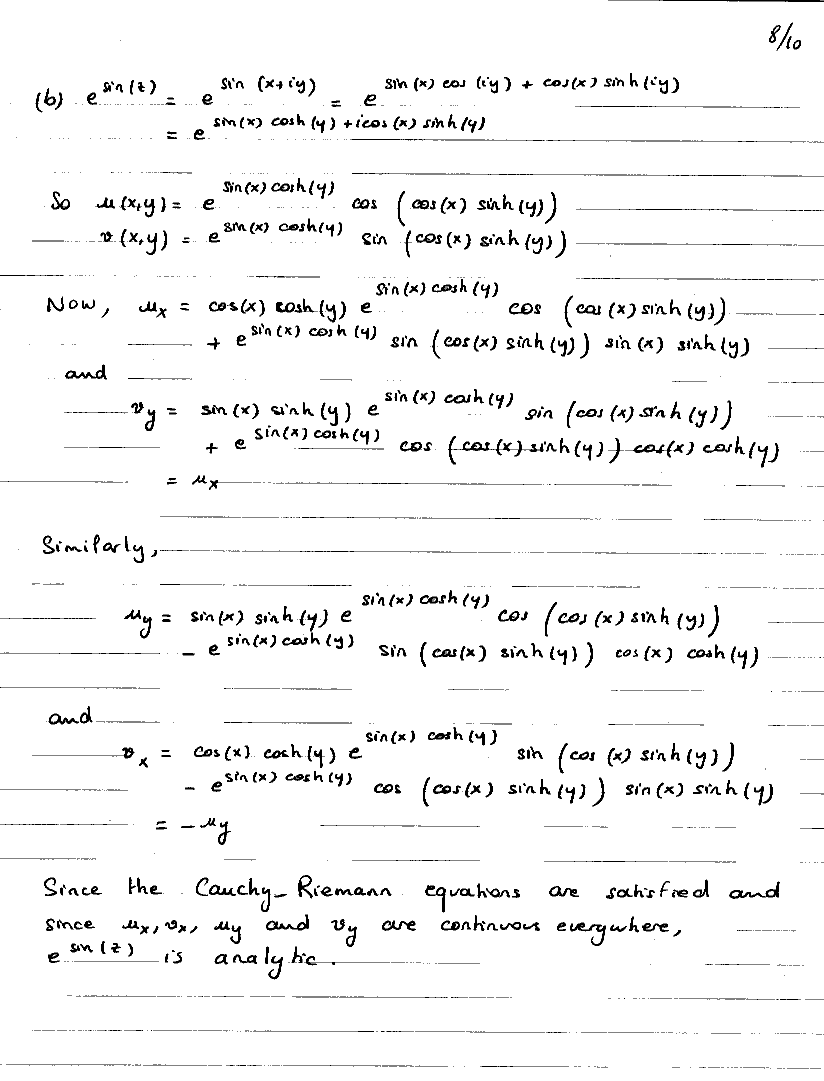 8/10
(b) e^sin(z) = e^sin(x+iy) = e^sin(x) cos(iy) + cos(x) sinh(iy)
= e^sin(x) cosh(y) + i cos(x) sinh(y)
So u(x,y) = e^sin(x) cosh(y) cos (cos(x) sinh(y))
v(x,y) = e^sin(x) cosh(y) sin (cos(x) sinh(y))
Now, u_x = cos(x) cosh(y) e^sin(x) cosh(y) cos (cos(x) sinh(y))
+ e^sin(x) cosh(y) sin (cos(x) sinh(y)) sin(x) sinh(y)
and
v_y = sin(x) sinh(y) e^sin(x) cosh(y) sin (cos(x) sinh(y))
+ e^sin(x) cosh(y) cos (cos(x) sinh(y)) cos(x) cosh(y)
= u_x
Similarly,
u_y = sin(x) sinh(y) e^sin(x) cosh(y) cos (cos(x) sinh(y))
- e^sin(x) cosh(y) sin (cos(x) sinh(y)) cos(x) cosh(y)
and
v_x = cos(x) cosh(y) e^sin(x) cosh(y) sin (cos(x) sinh(y))
- e^sin(x) cosh(y) cos (cos(x) sinh(y)) sin(x) sinh(y)
= -u_y
Since the Cauchy-Riemann equations are satisfied and
since u_x, v_x, u_y and v_y are continuous everywhere,
e^sin(z) is analytic.